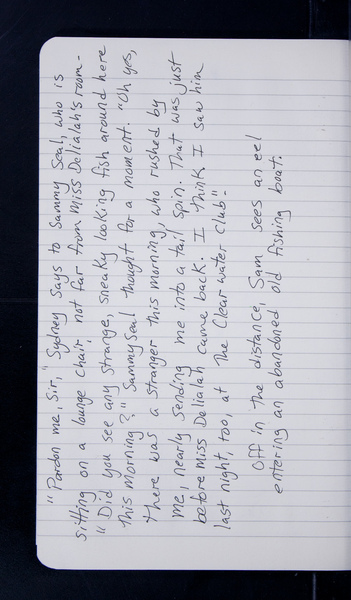 "Pardon me, Sir," Sydney says to Sammy Seal, who is
sitting on a lounge chair, not far from Miss Delialah's room-
"Did you see any strange, sneaky looking fish around here
this morning?" Sammy Seal thought for a moment. "Oh yes,
there was a stranger this morning, who rushed by
me, nearly sending me into a tail spin. That was just
before miss Delialah came back. I think I saw him
last night, too, at The Clear water Club."
Off in the distance, Sam sees an eel
entering an abandoned old fishing boat.